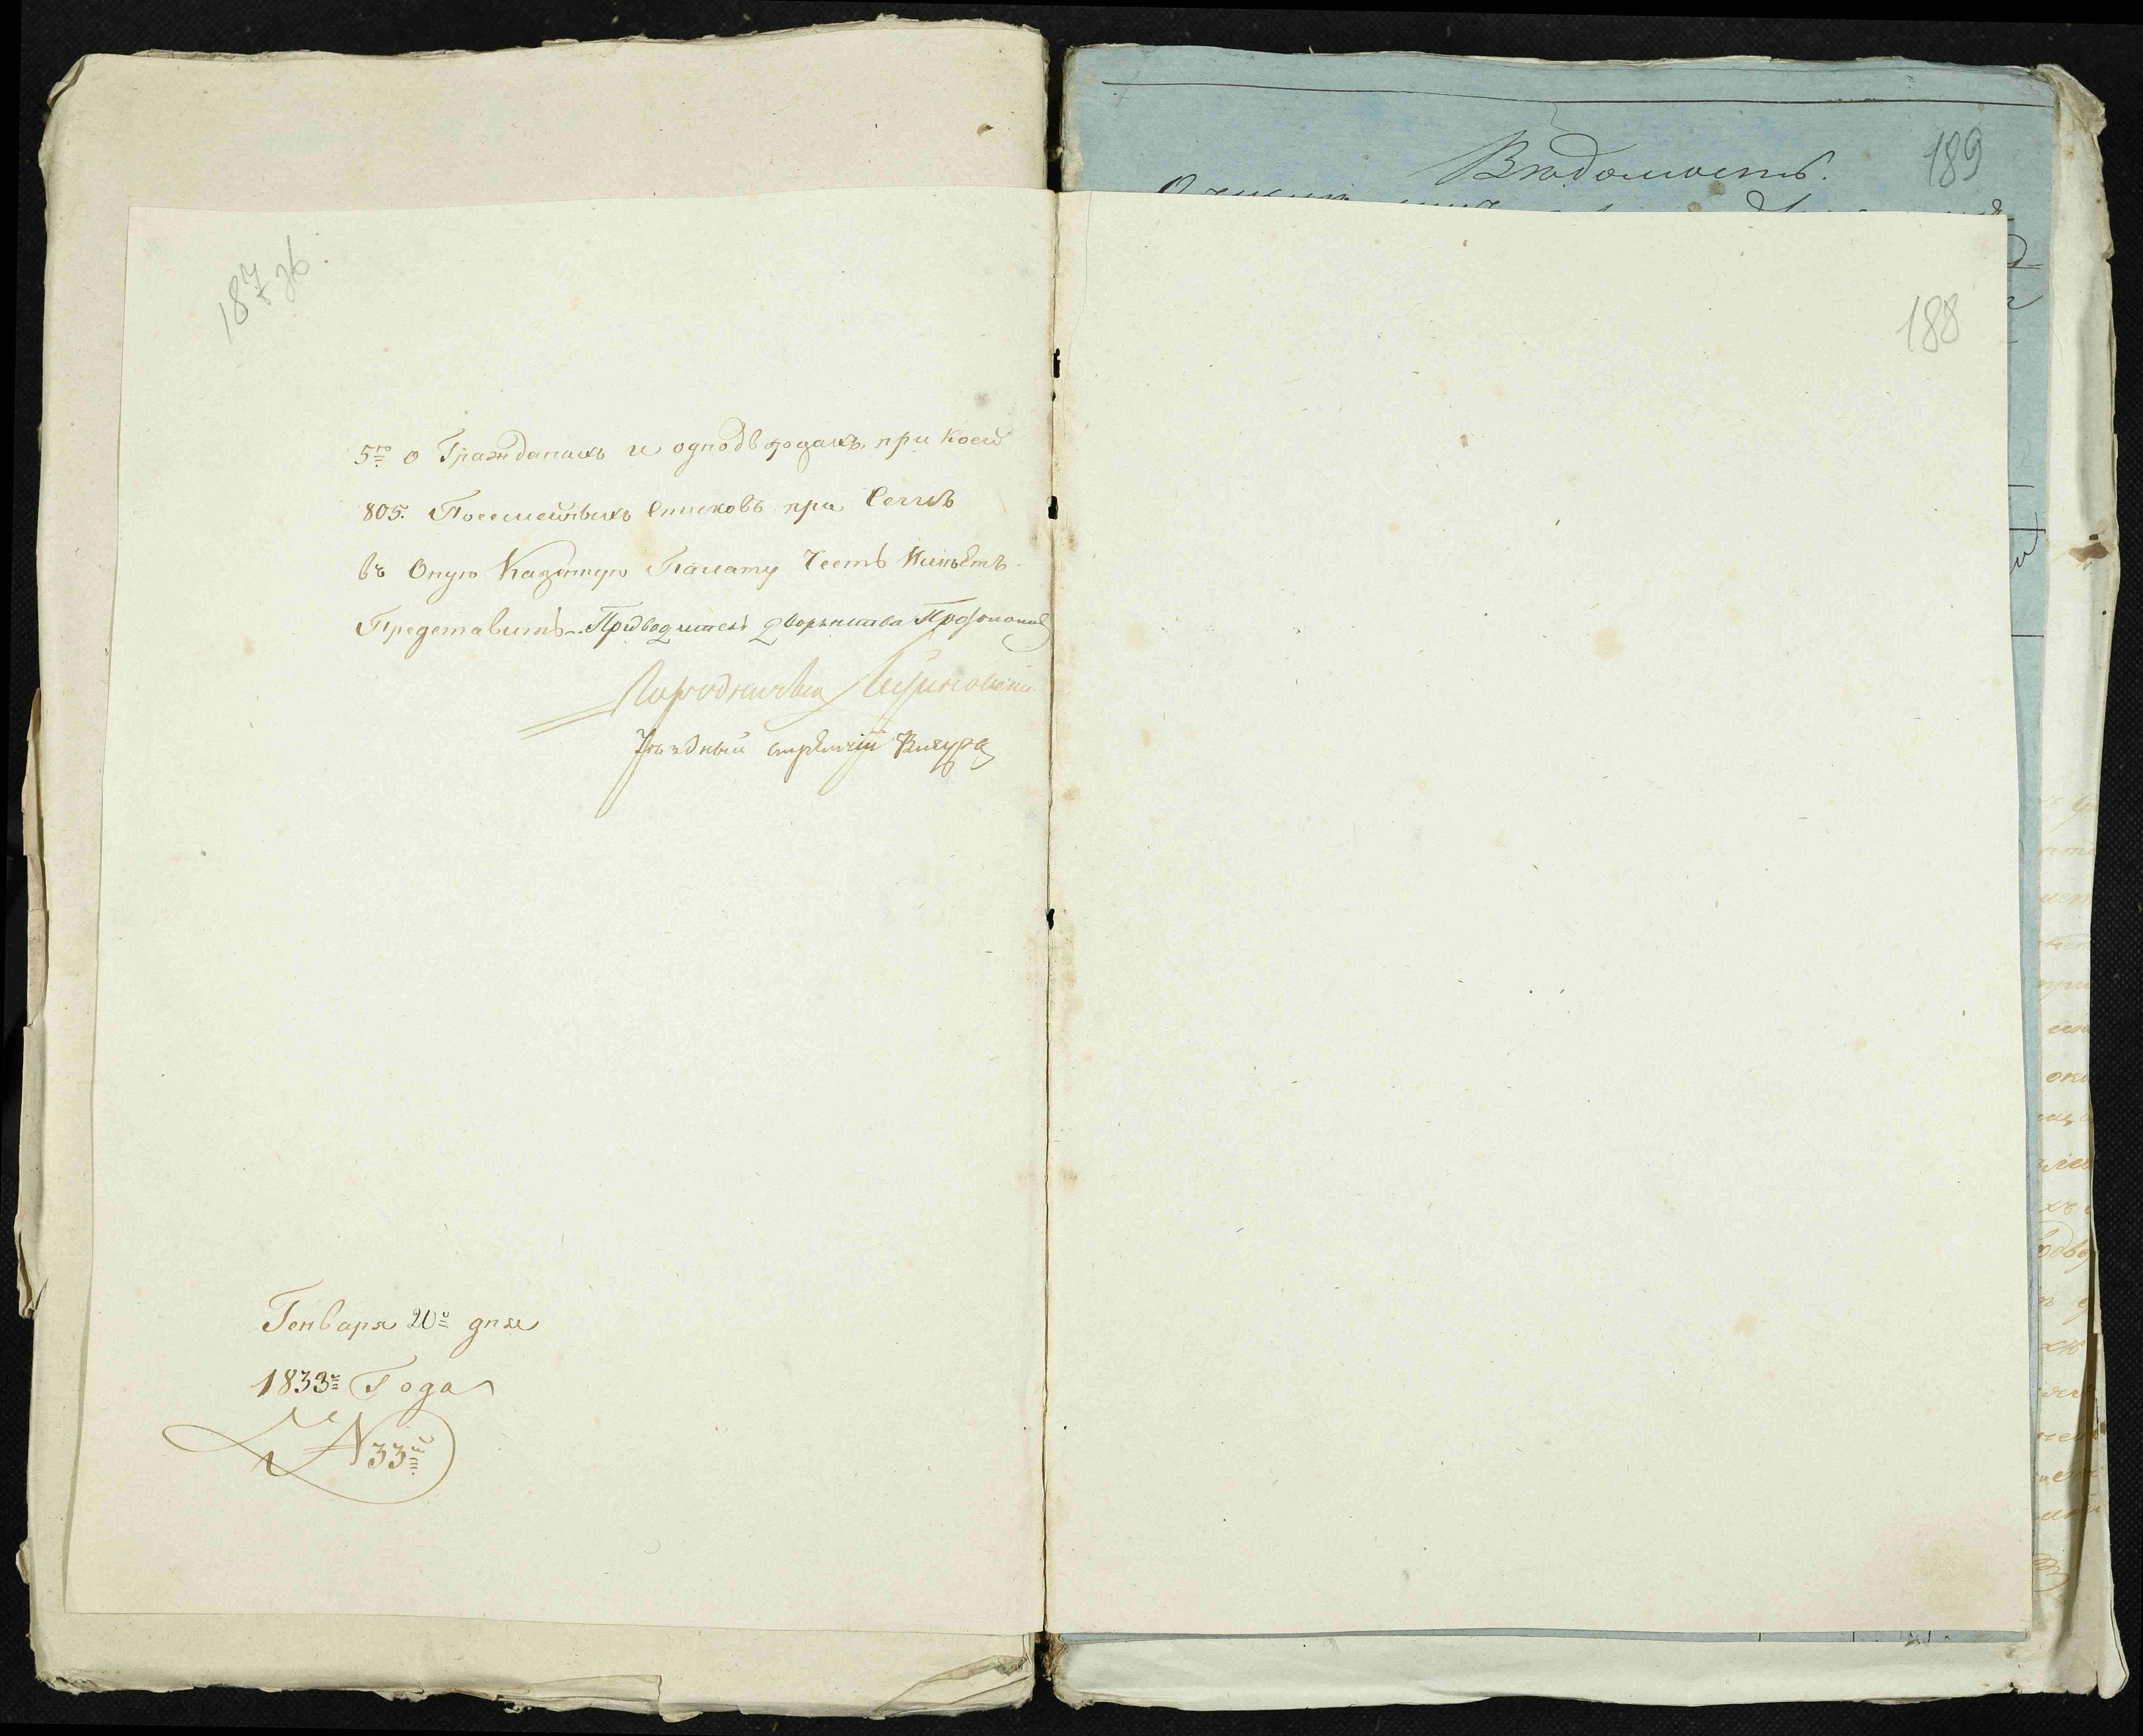 187 об.
5го о Гражданахъ и однодворцахъ, при коей
805. Посемейныхъ Списковъ при Семъ
въ Оную Казенную Палату Честь Имѣетъ
Представить. Предводитель дворянства
Городничий
Уѣздный стряпчій
Генваря 20го дня
1833го Года
N 33й
189
Вѣдомость.
188